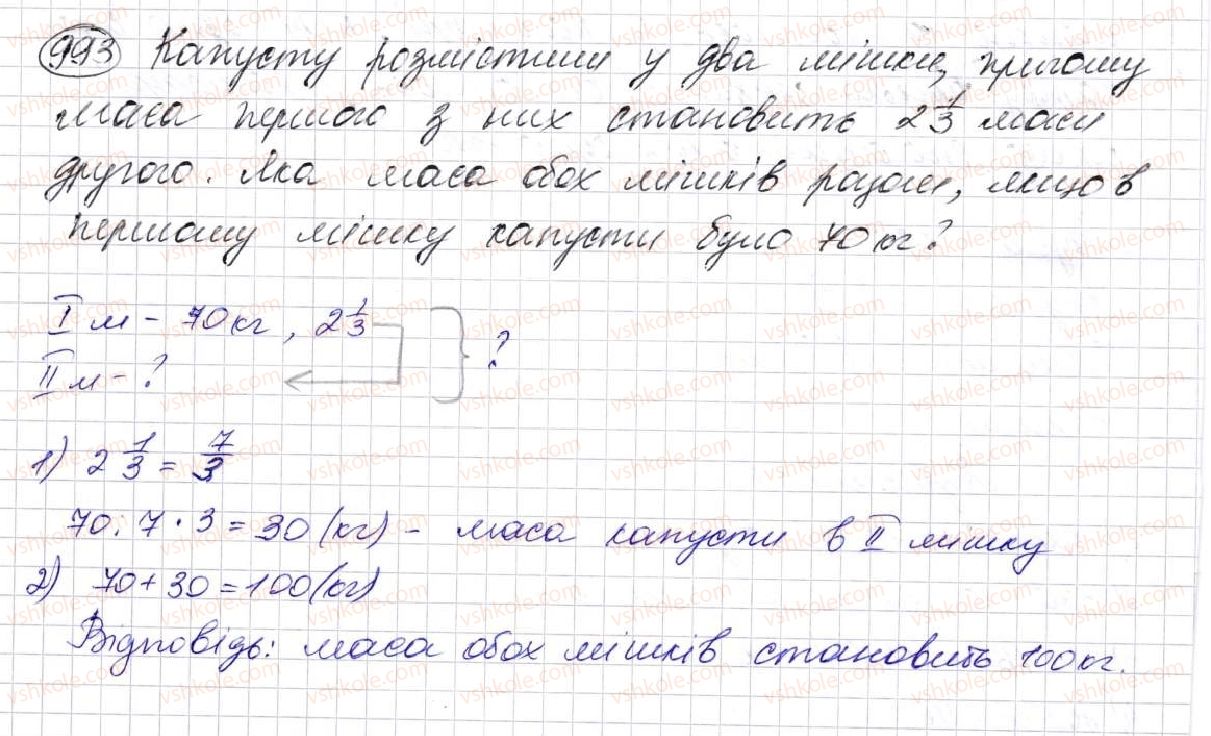 993 Капусту розмістили у два мішки, причому
маса першого з них становить 2 1/3 маси
другого. Яка маса обох мішків разом, якщо в
першому мішку капусти було 70 кг?
I м - 70 кг, 2 1/3
?
II м - ?
1) 2 1/3 = 7/3
70 : 7 · 3 = 30 (кг) - маса капусти в II мішку
2) 70 + 30 = 100 (кг)
Відповідь: маса обох мішків становить 100 кг.
vshkole.com